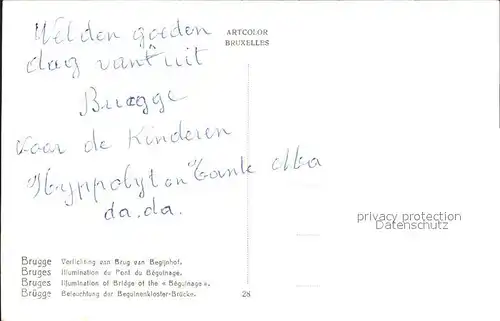 Wel den goeden
dag vanuit
Brugge
voor de Kinderen
Hyppolyt en Tante Alba
da.da.
ARTCOLOR
BRUXELLES
privacy protection
Datenschutz
Brugge Verlichting van Brug van Begijnhof.
Bruges Illumination du Pont du Béguinage.
Bruges Illumination of Bridge of the « Béguinage ».
Brügge Beleuchtung der Beguinenkloster-Brücke.
28